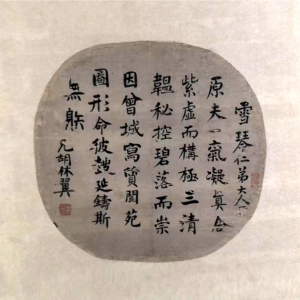 雪琴仁弟大人
原夫一氣凝真含
紫虛而構極三清
韞秘控碧落而崇
因曾城寫質閬苑
圖形命彼鼓延鑄斯
無射
兄胡林翼